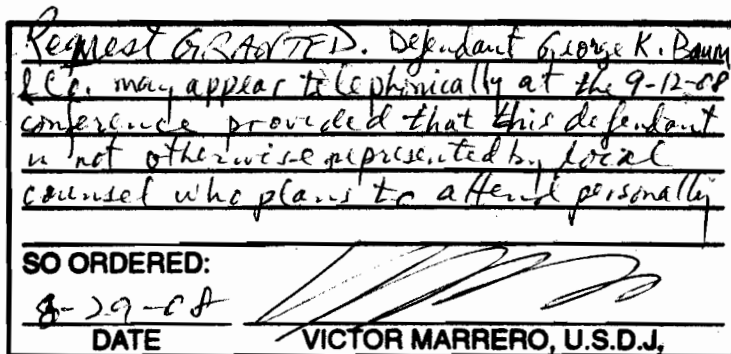 Request GRANTED. Defendant George K. Baum
& Co. may appear telephonically at the 9-12-08
conference provided that this defendant
is not otherwise represented by local
counsel who plans to attend personally
SO ORDERED:
8-29-08
DATE VICTOR MARRERO, U.S.D.J.